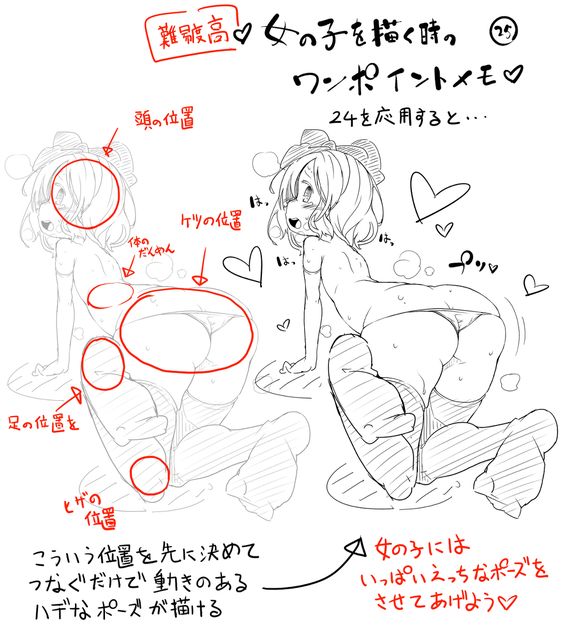 難易度高♥女の子を描く時の ㉕
ワンポイントメモ♡
24を応用すると・・・
頭の位置
はっ
ケツの位置
体の
だんめん
はっ
はっ
プリッ♥
足の位置を
ヒザの
位置
こういう位置を先に決めて
つなぐだけで動きのある
ハデなポーズが描ける
女の子には
いっぱいえっちなポーズを
させてあげよう♡